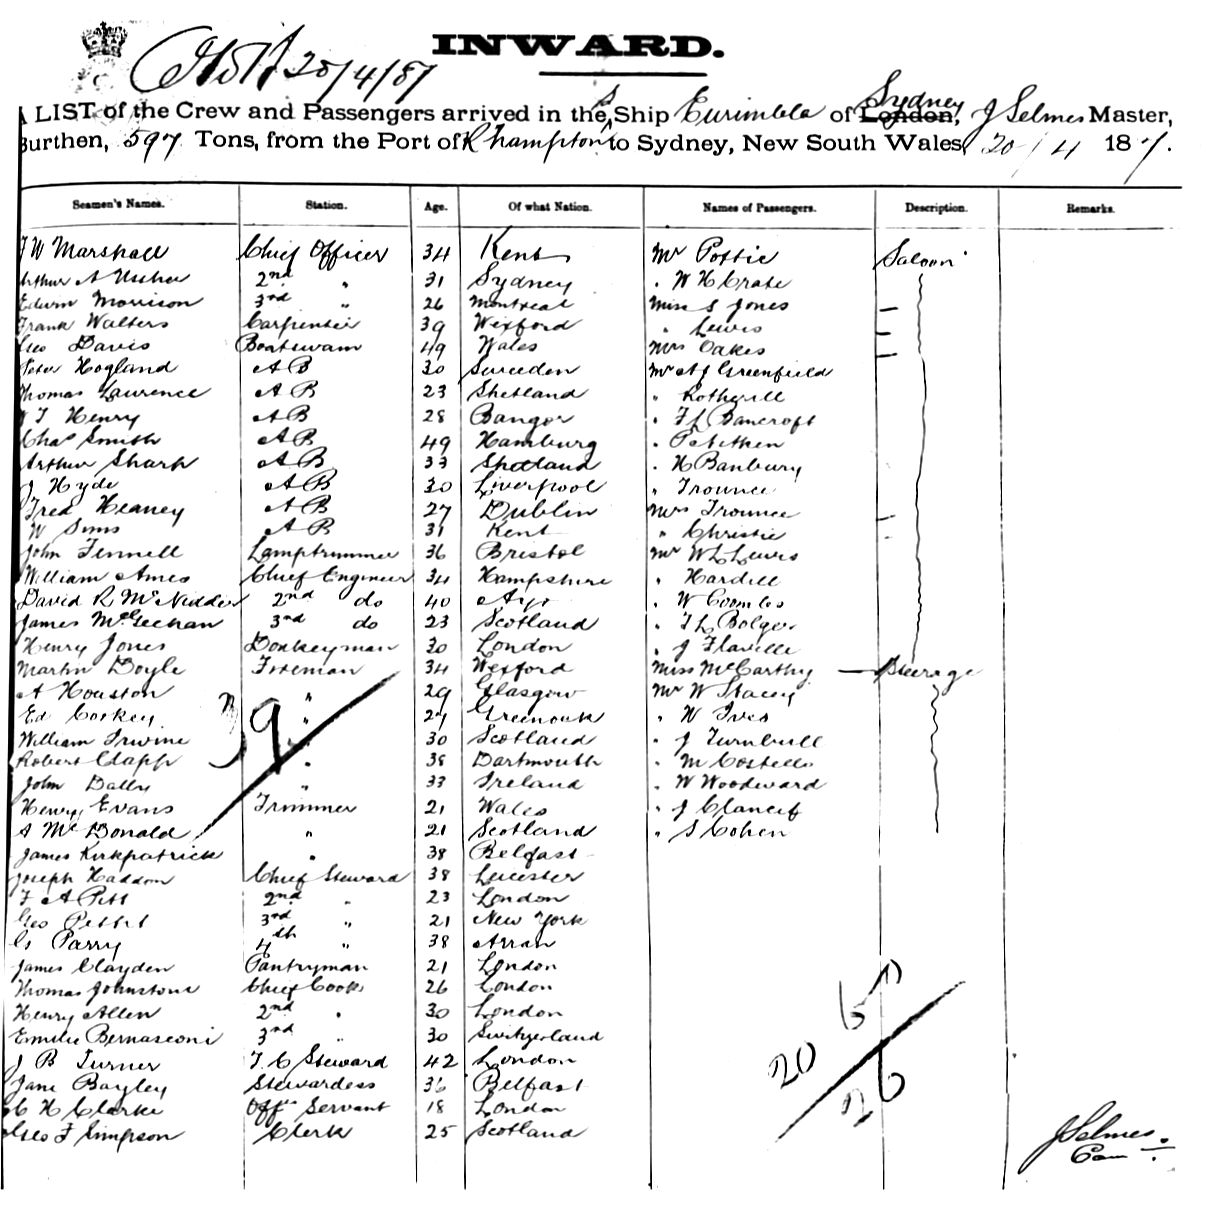 20/4/87
INWARD.
A LIST of the Crew and Passengers arrived in the SS Ship Eurimbla of London, Sydney J Selmes Master,
Burthen, 597 Tons, from the Port of R'hampton to Sydney, New South Wales, 20/4 187.
Seamen's Names. Station. Age. Of what Nation. Names of Passengers. Description. Remarks.
W Marshall Chief Officer 34 Kent Mr Pottie Saloon
Arthur A Usher 2nd " 31 Sydney " W H Crate
Edwin Morrison 3rd " 26 Montreal Miss S Jones —
Frank Walters Carpenter 39 Wexford " Lewis —
Geo Davis Boatswain 49 Wales Mrs Oakes —
Peter Hogland A B 30 Sweeden Mr A J Greenfield
Thomas Laurence A B 23 Shetland " Rotherill
T Henry A B 28 Bangor " F L Bancroft
Chas Smith A B 49 Hamburg " Pethken
Arthur Sharp A B 33 Shetland " H Banbury
J Hyde A B 30 Liverpool " Trounce
Fred Heaney A B 27 Dublin Mrs Trounce —
W Sims A B 31 Kent " Christie "
John Fennell Lamptrimmer 36 Bristol Mr W L Lewis
William Ames Chief Engineer 34 Hampshire " Hardill
David R McNidder 2nd do 40 Ayr " W Coombes
James McGeehan 3rd do 23 Scotland " F L Bolger
Henry Jones Donkeyman 30 London " J Flaville
Martin Doyle Fireman 34 Wexford Miss McCarthy — Steerage
A Houston " 29 Glasgow Mr W Stacey
Ed Corkey " 27 Greenock " W Ives
William Irwine " 30 Scotland " J Turnbull
Robert Clapp " 38 Dartmouth " M Costello
John Dally " 33 Ireland " W Woodward
Henry Evans Trimmer 21 Wales " J Clancy
A McDonald " 21 Scotland " S Cohen
James Kirkpatrick " 38 Belfast
Joseph Haddon Chief Steward 38 Leicester
F A Pitt 2nd " 23 London
Geo Pettit 3rd " 21 New York
Parry 4th " 38 Arran
James Clayden Pantryman 21 London
Thomas Johnstone Chief Cook 26 London
Henry Allen 2nd " 30 London
Emilie Bernasconi 3rd " 30 Switzerland
J B Turner F C Steward 42 London
Jane Bayley Stewardess 36 Belfast
C H Clarke Offs Servant 18 London
Geo F Simpson Clerk 25 Scotland
39
20
26
J Selmes
Com